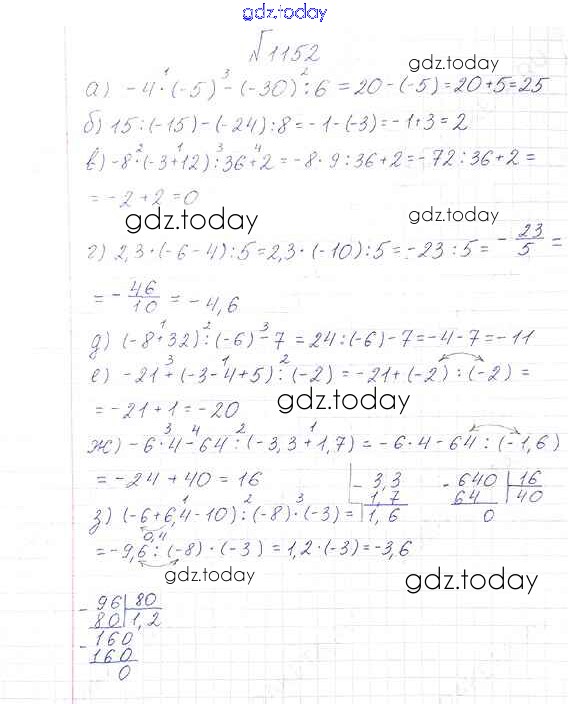 gdz.today
№1152
gdz.today
а) -4·(-5) - (-30) : 6 = 20 - (-5) = 20 + 5 = 25
б) 15 : (-15) - (-24) : 8 = -1 - (-3) = -1 + 3 = 2
в) -8·(-3+12) : 36 + 2 = -8·9 : 36 + 2 = -72 : 36 + 2 =
= -2 + 2 = 0
gdz.today gdz.today
г) 2,3·(-6-4) : 5 = 2,3·(-10) : 5 = -23 : 5 = -23/5 =
= -46/10 = -4,6
д) (-8+32) : (-6) - 7 = 24 : (-6) - 7 = -4 - 7 = -11
е) -21 + (-3-4+5) : (-2) = -21 + (-2) : (-2) =
= -21 + 1 = -20
gdz.today
ж) -6·4 - 64 : (-3,3+1,7) = -6·4 - 64 : (-1,6)
= -24 + 40 = 16
- 3,3
1,7
1,6
- 640 16
64 40
0
з) (-6+6,4-10) : (-8)·(-3) =
0,4
= -9,6 : (-8)·(-3) = 1,2·(-3) = -3,6
gdz.today gdz.today
- 96 80
80 1,2
- 160
160
0